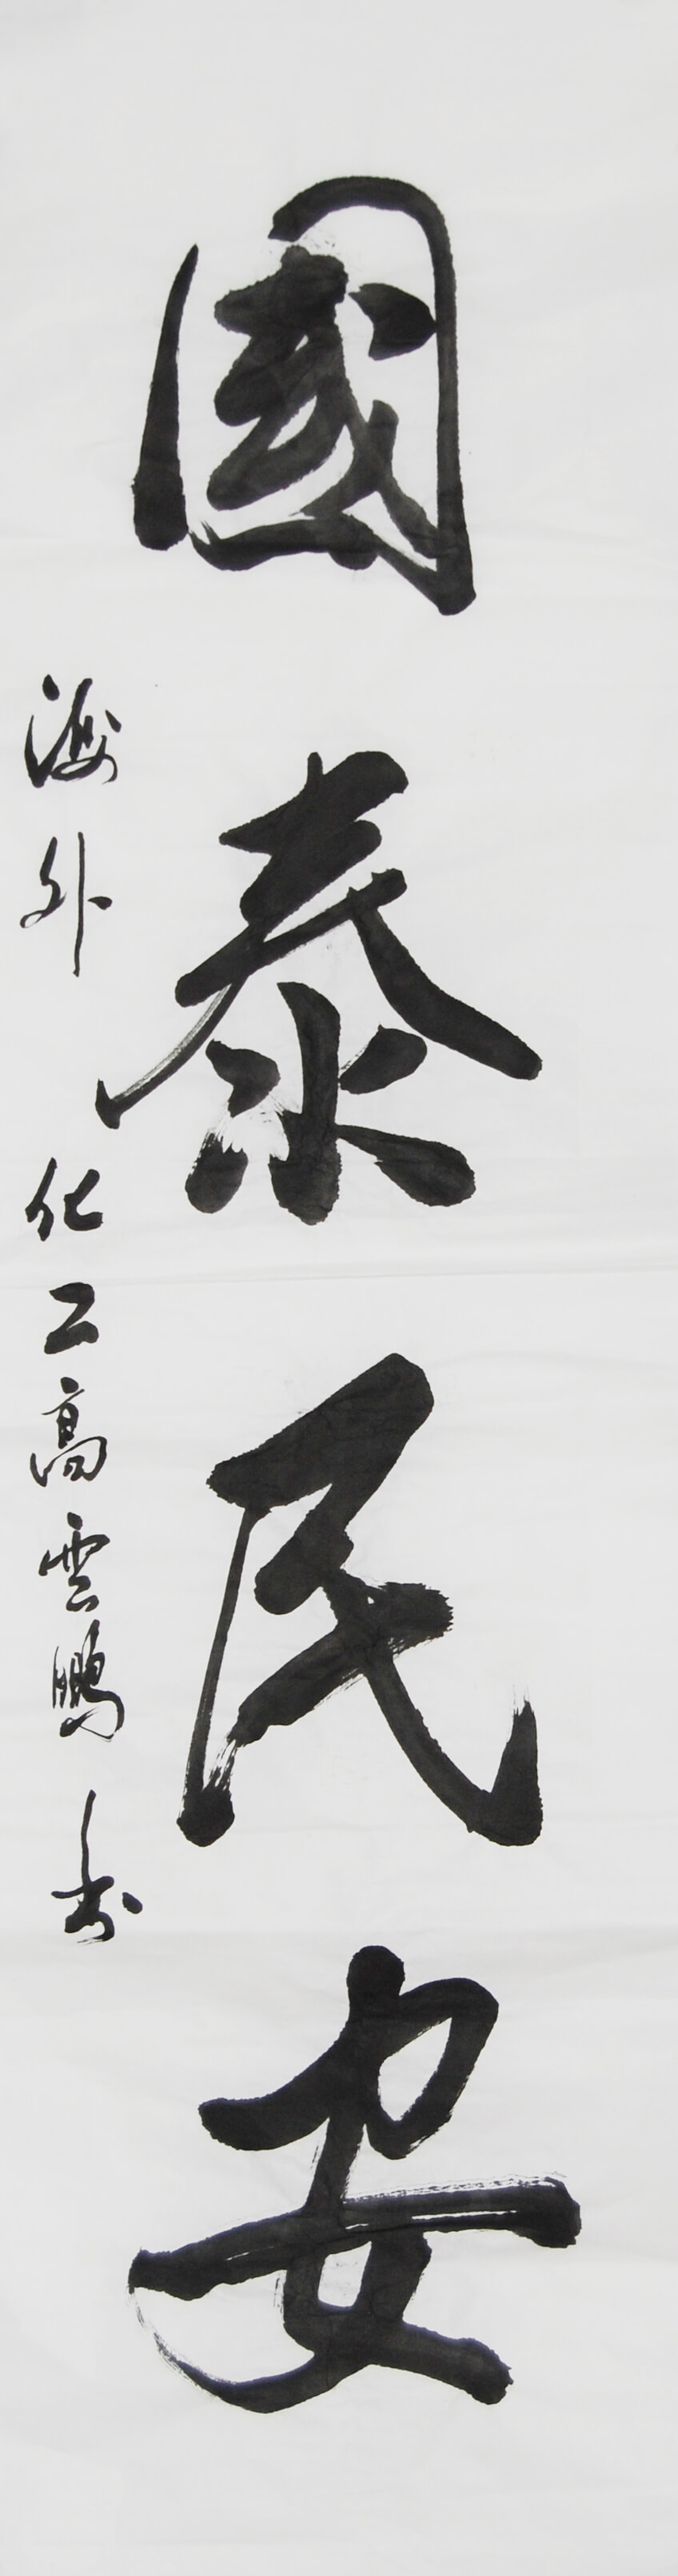 國泰民安
海外 化工高雲鵬書